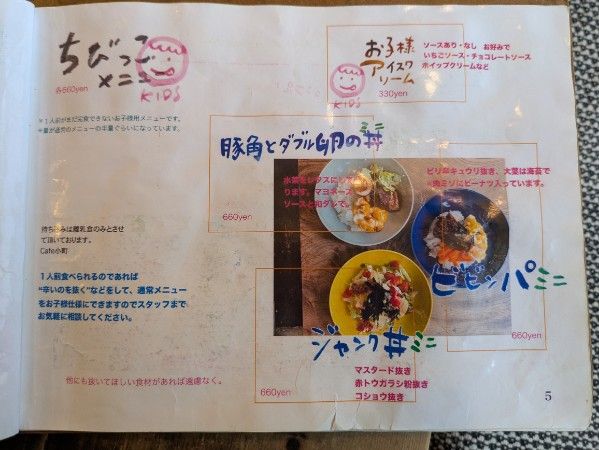 ちびっこ
メニュー
KIDS
各660yen
お子様
アイスク
リーム
KIDS
330yen
ソースあり・なし お好みで
いちごソース・チョコレートソース
ホイップクリームなど
*1人前がまだ完食できないお子様用メニューです。
*量が通常のメニューの半量ぐらいになっています。
豚角とダブル卵の丼ミニ
水菜をレタスにして
ります。マヨネーズ
ソースと和ダレで。
660yen
ピリ辛キュウリ抜き、大葉は海苔で
肉ミソにピーナツ入っています。
ビビンパミニ
660yen
持ち込みは離乳食のみとさせ
て頂いております。
Cafe小町
1人前食べられるのであれば
“辛いのを抜く”などをして、通常メニュー
をお子様仕様にできますのでスタッフまで
お気軽に相談してください。
ジャンク丼ミニ
マスタード抜き
赤トウガラシ粉抜き
コショウ抜き
660yen
他にも抜いてほしい食材があれば遠慮なく。
5